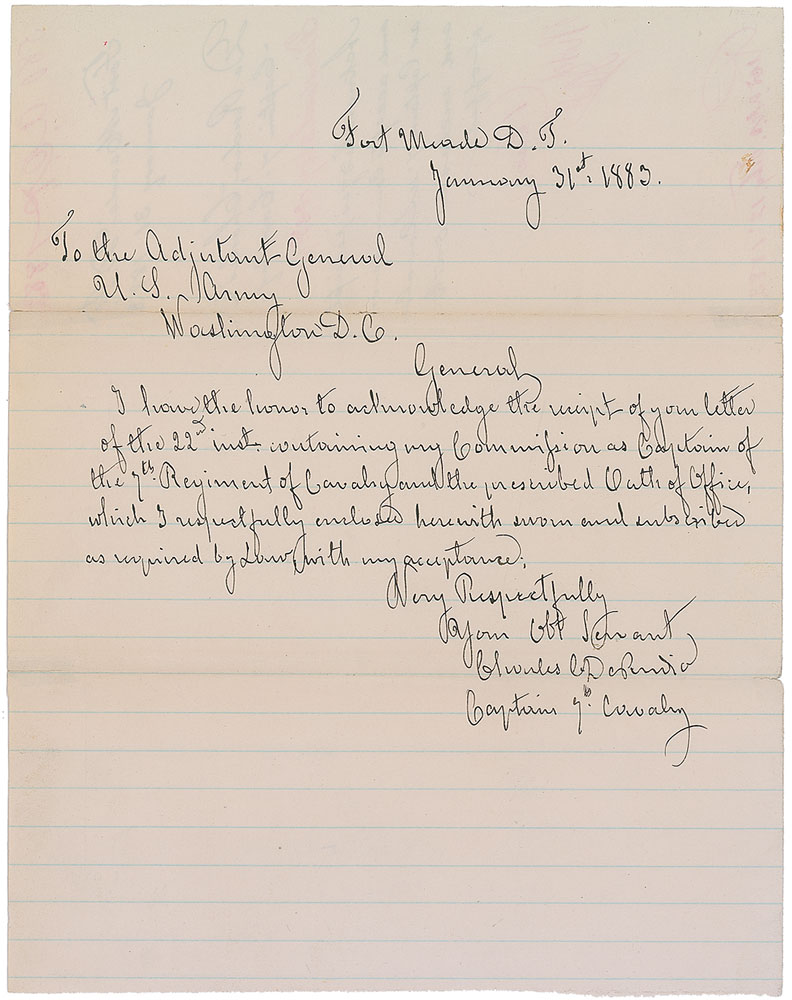 Fort Meade D. T.
January 31st 1883.
To the Adjutant General
U. S. Army
Washington D. C.
General
I have the honor to acknowledge the receipt of your letter
of the 22nd inst. containing my Commission as Captain of
the 7th Regiment of Cavalry and the prescribed Oath of Office,
which I respectfully enclosed herewith sworn and subscribed
as required by Law, with my acceptance.
Very Respectfully
Your Obt Servant
Charles C DeRudio
Captain 7th Cavalry